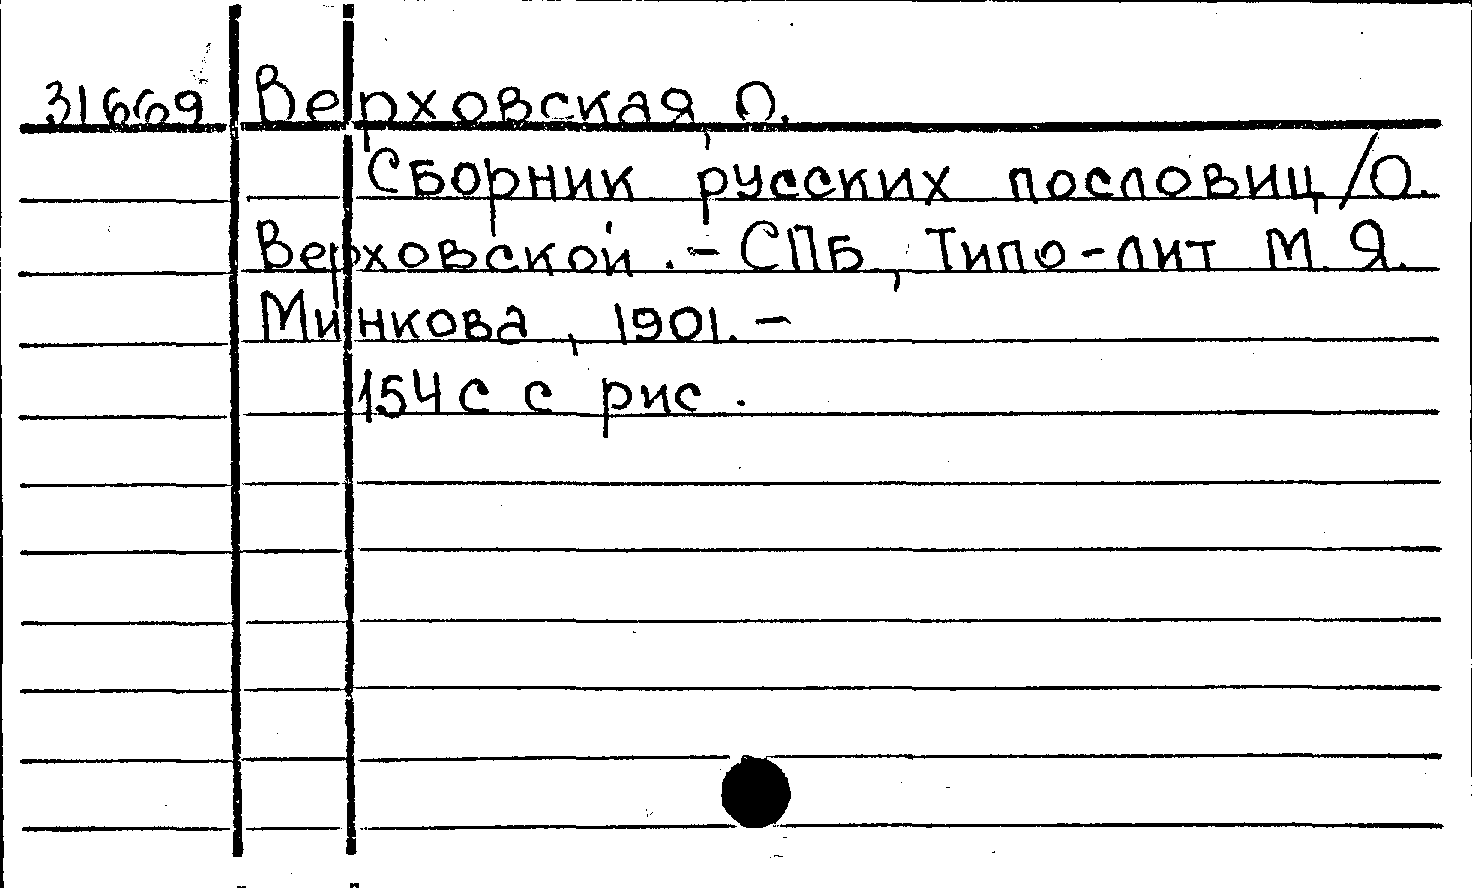 31669 Верховская, О.
Сборник русских пословиц / О.
Верховской. - СПБ, Типо-лит М. Я.
Минкова, 1901. -
154 с с рис.